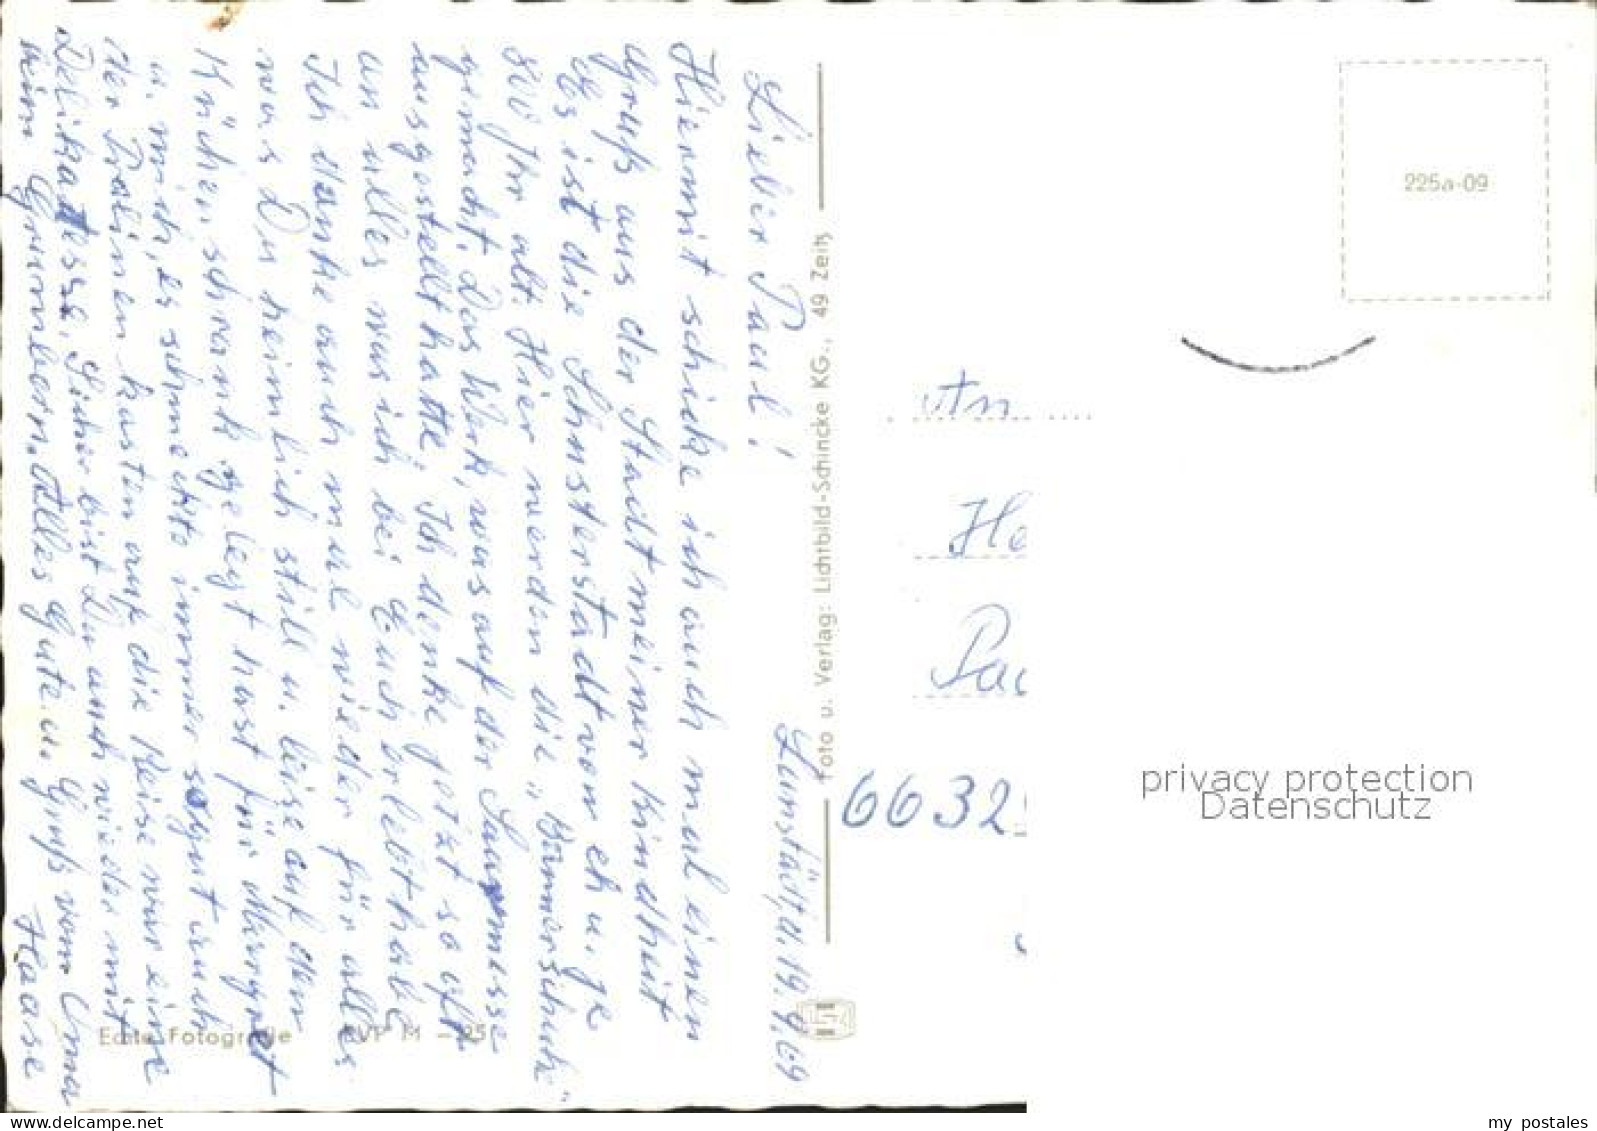 Laumstädt, d. 19.9.69
Lieber Paul!
Hiermit schicke ich auch mal einen
Gruß aus der Stadt meiner Kindheit
Es ist die Schusterstadt von eh u. je
800 Jhr alt. Hier werden die „Börnerschuh"
gemacht. Das Werk, was auf der Saarmesse
ausgestellt hatte. Ich denke jetzt so oft
an alles was ich bei Euch erlebt habe
Ich danke auch mal wieder für alles
was Du heimlich still u. leise auf den
Küchenschrank gelegt hast für Margret
u. mich, es schmeckte immer so gut auch
der Pralinenkasten auf die Reise war eine
Delikatesse. Sicher bist Du auch wieder mit
beim Gute u. Gruß vom Oma
Haase
Foto u. Verlag: Lichtbild-Schincke KG., 49 Zeitz
225a-09
An
He
Pau
6632
Echte Fotografie
privacy protection
Datenschutz
my postales
www.delcampe.net